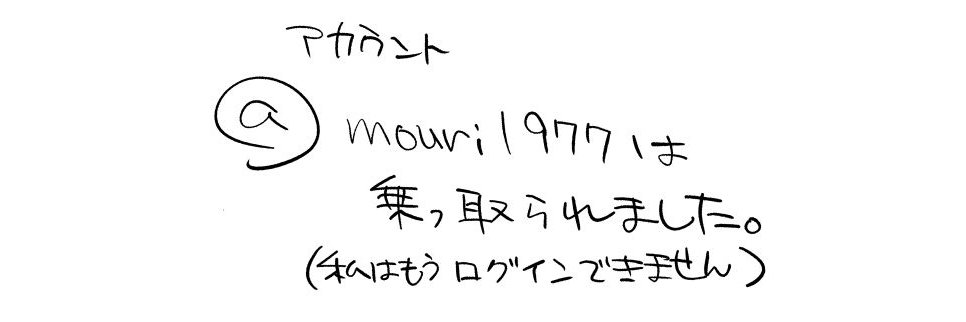 アカウント
@mouri1977は
乗っ取られました。
(私はもうログインできません)